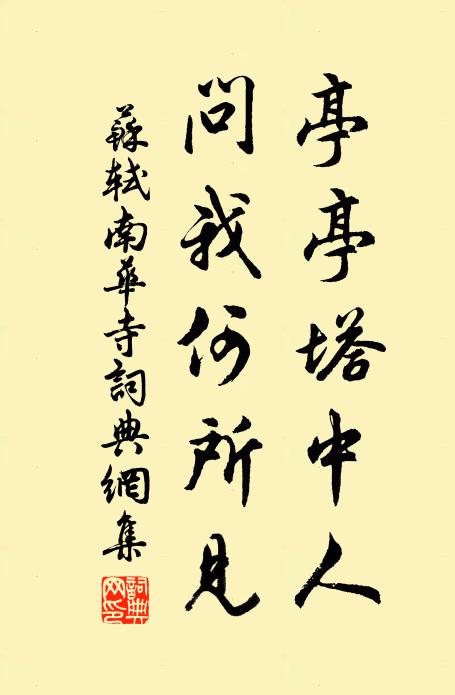 亭亭塔中人
問我何所見
蘇軾南華寺詞典網集
詞典
网印